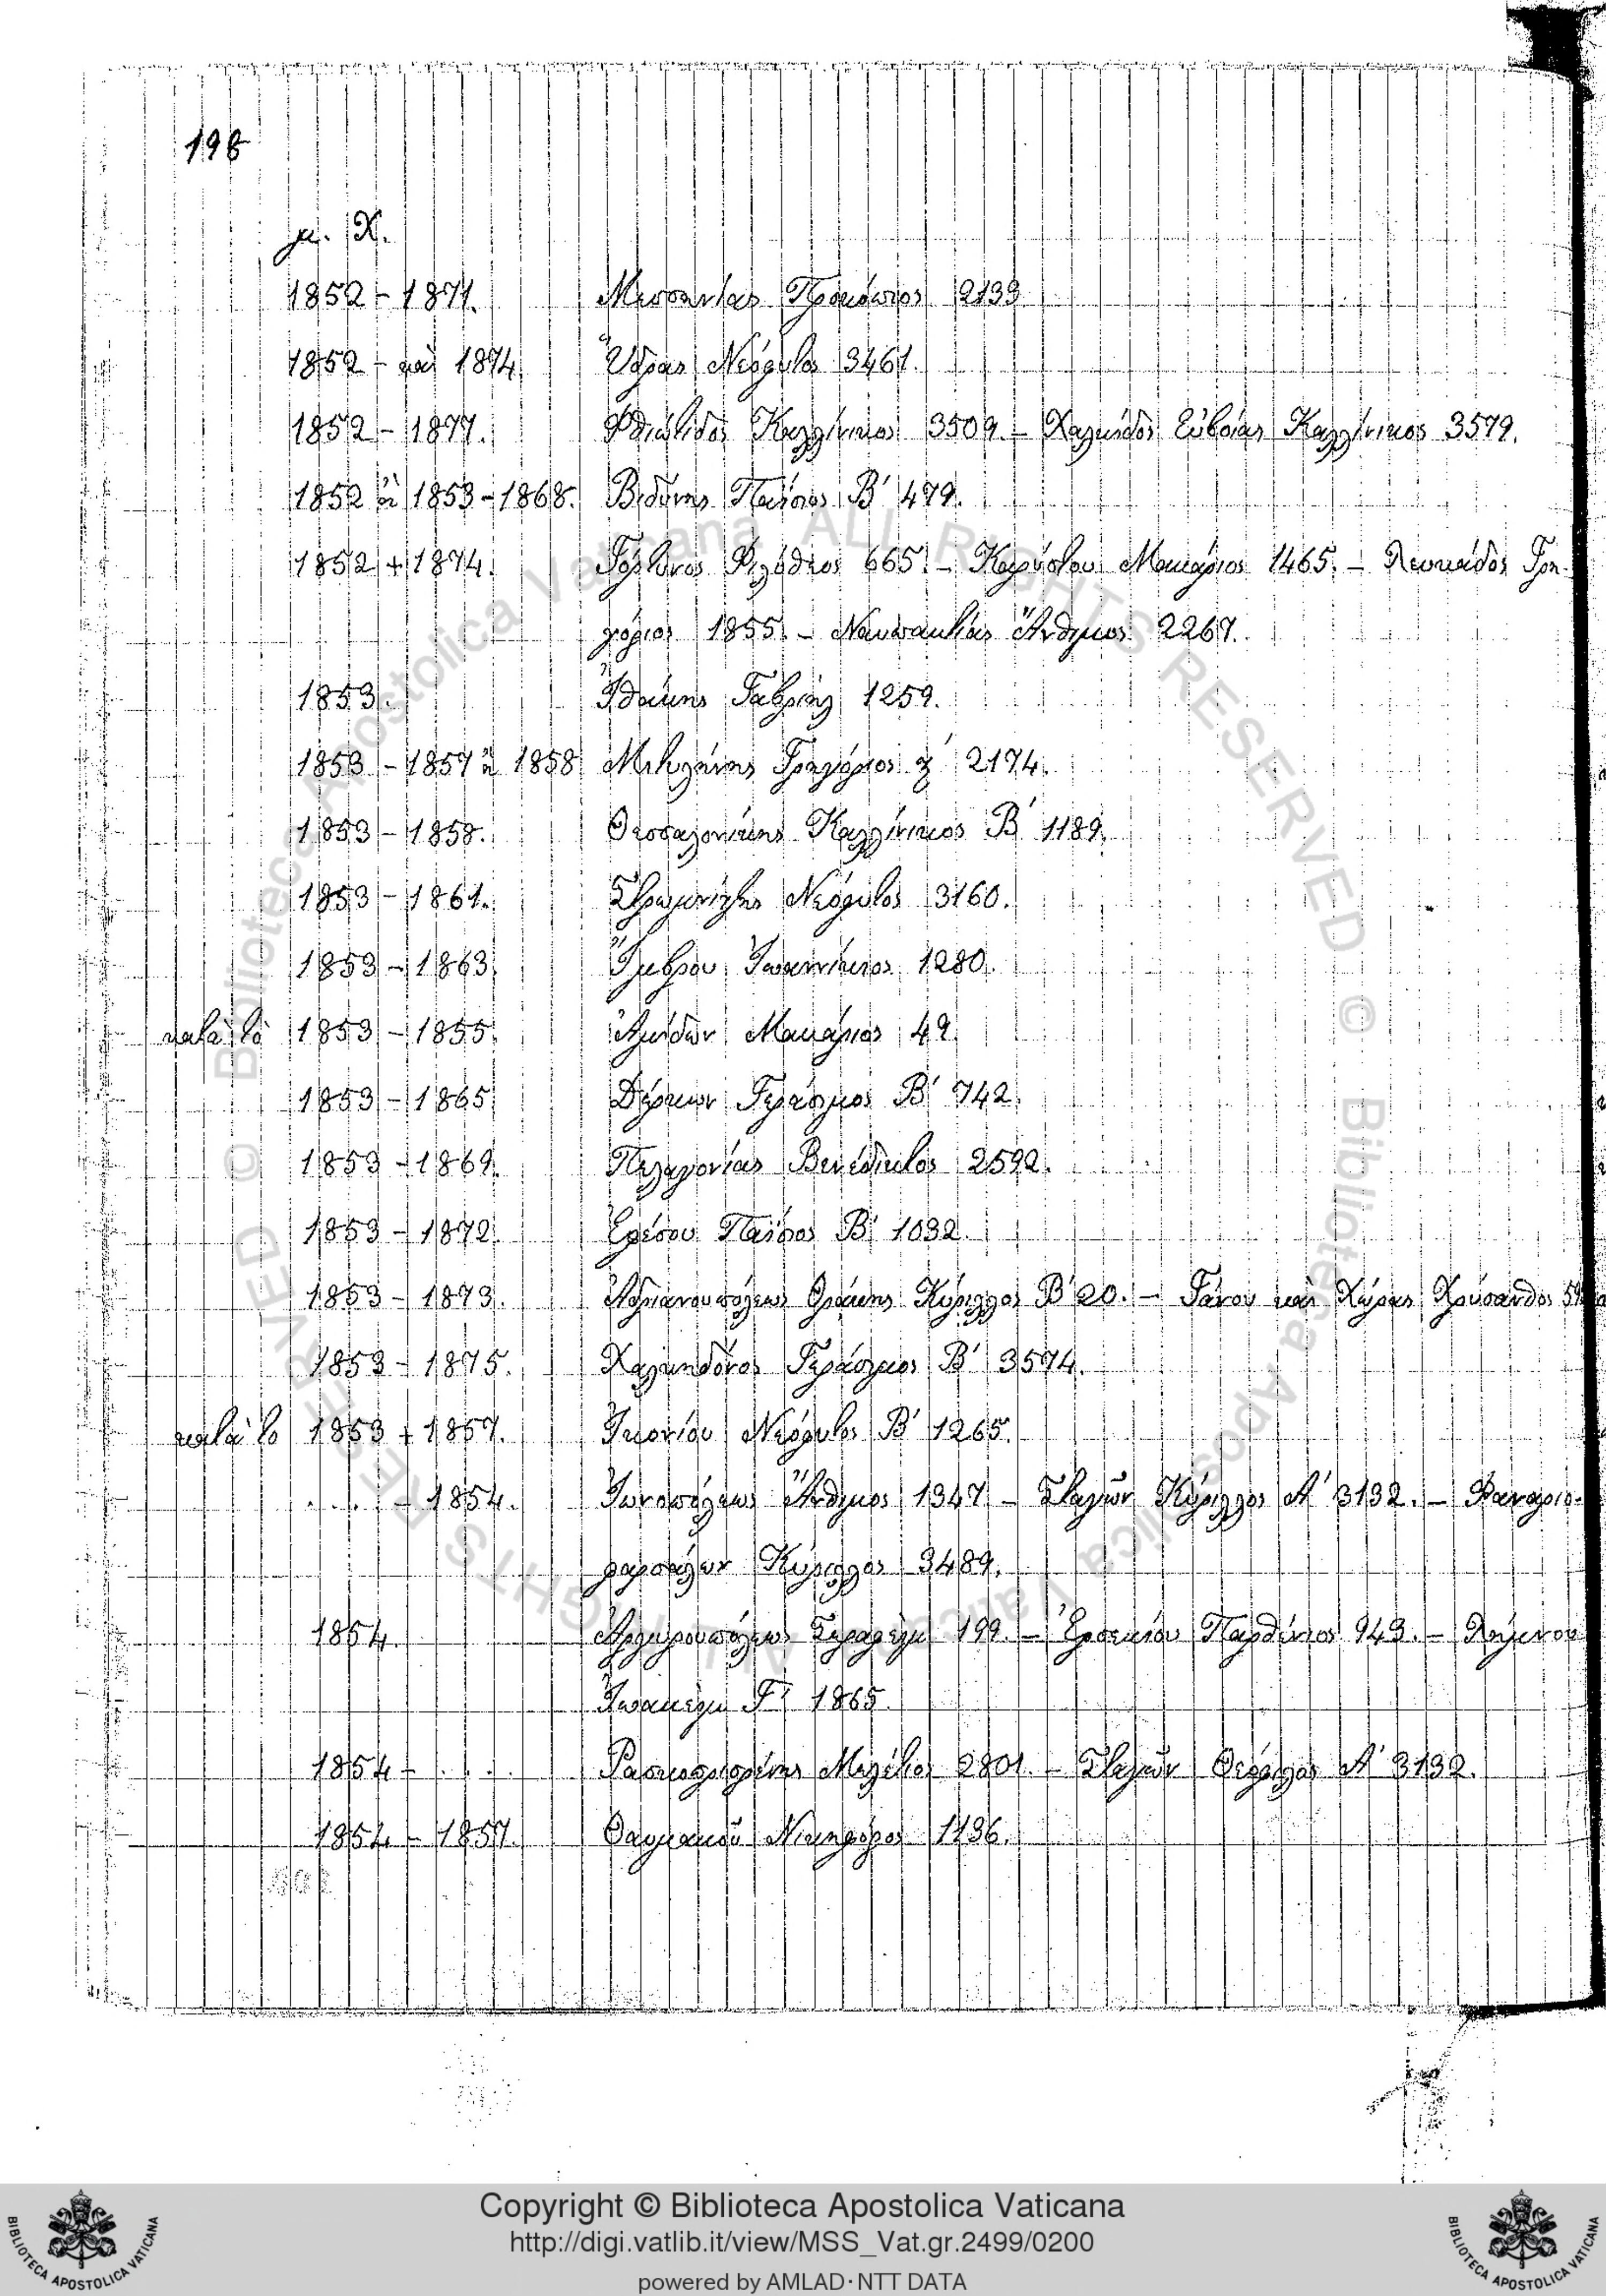 198
μ. Χ.
1852 - 1871. Μεσσηνίας Προκόπιος 2133
1852 - καὶ 1874 Ὕδρας Νεόφυτος 3461.
1852 - 1877. Φθιώτιδος Καλλίνικος 3509. - Χαλκίδος Εὐβοίας Καλλίνικος 3579.
1852 ἢ 1853 - 1868. Βιδύνης Παΐσιος Β' 479.
1852 + 1874. Γόρτυνος Φιλόθεος 665. - Καρύστου Μακάριος 1465. - Λευκάδος Γρη-
γόριος 1855. - Ναυπακτίας Ἄνθιμος 2267.
1853. Ἰθάκης Γαβριὴλ 1259.
1853 - 1857 ἢ 1858 Μιτυλήνης Γρηγόριος 2174.
1853 - 1858. Θεσσαλονίκης Καλλίνικος Β' 1189.
1853 - 1861. Στρωμνίτζης Νεόφυτος 3160.
1853 - 1863. Ἴμβρου Ἰωαννίκιος 1280.
κατὰ τὸ 1853 - 1855. Μακάριος 49.
1853 - 1865 Δέρκων Γεράσιμος Β' 742.
1853 - 1869. Πελαγονίας Βενέδικτος 2592.
1853 - 1872. Ἐφέσου Παΐσιος Β' 1032.
1853 - 1873. Ἀδριανουπόλεως Θρᾴκης Κύριλλος Β' 20. - Γάνου καὶ Χώρας Χρύσανθος
1853 - 1875. Χαλκηδόνος Γεράσιμος Β' 3574.
κατὰ τὸ 1853 + 1857. Ἰκονίου Νεόφυτος Β' 1265.
. . . . - 1854. Ἰωνοπόλεως Ἄνθιμος 1347 - Σταγῶν Κύριλλος Α' 3132. - Φαναριο-
φαρσάλων Κύριλλος 3489.
1854. Ἀργυρουπόλεως Σεραφεὶμ 199. - Ἐρσεκίου Παρθένιος 943. - Λήμνου
Ἰωακεὶμ Γ' 1865.
1854 - . . . Ρασκοπρισρένης Μελέτιος 2801. - Σταγῶν Θεόφιλος Α' 3132.
1854 - 1857. Θαυμακοῦ Νικηφόρος 1136.
© Biblioteca Apostolica Vaticana ALL RIGHTS RESERVED © Biblioteca Apostolica Vaticana ALL RIGHTS RESERVED
Copyright © Biblioteca Apostolica Vaticana
http://digi.vatlib.it/view/MSS_Vat.gr.2499/0200
powered by AMLAD·NTT DATA
BIBLIOTECA APOSTOLICA VATICANA
BIBLIOTECA APOSTOLICA VATICANA